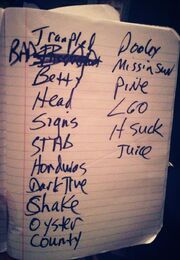 Trampled
BAD
Betty
Head
Signs
STAB
Honduras
Dark Tive
Shake
Oyster
County
Dooley
Missin Suv
Pine
LGO
H Suck
Juice